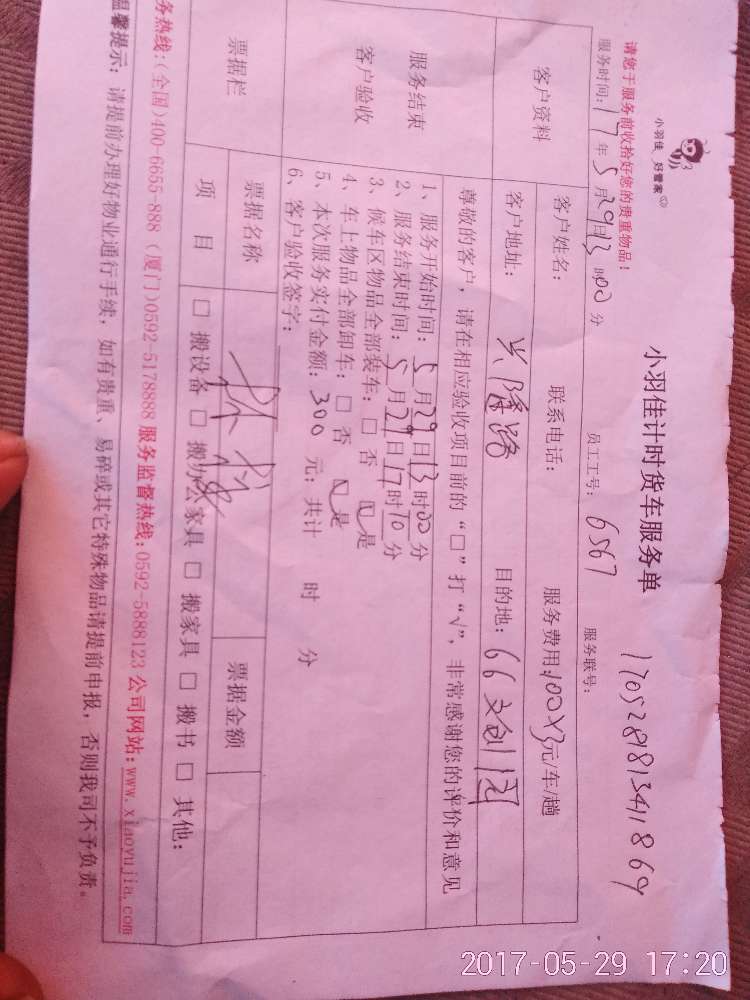 小羽佳 好管家
小羽佳计时货车服务单
170528981341186九
请您于服务前收拾好您的贵重物品!
服务时间:17年5月29日13时00分 员工工号:6567 服务联号:
客户资料
客户姓名: 联系电话: 服务费用:100×3元/车/趟
客户地址: 兴隆路 目的地: 66文创园
服务结束
客户验收
尊敬的客户,请在相应验收项目前的“□”打“√”,非常感谢您的评价和意见
1、服务开始时间:5月29日13时00分
2、服务结束时间:5月29日17时10分
3、候车区物品全部装车:□否 ☑是
4、车上物品全部卸车:□否 ☑是
5、本次服务实付金额:300元;共计 时 分
6、客户验收签字:
票据栏
票据名称 票据金额
项目 □搬设备 □搬办公家具 □搬家具 □搬书 □其他:
务热线:(全国)400-6655-888 (厦门)0592-5178888 服务监督热线:0592-5888123 公司网站:www.xiaoyujia.com
温馨提示:请提前办理好物业通行手续,如有贵重、易碎或其它特殊物品请提前申报,否则我司不予负责。
2017-05-29 17:20